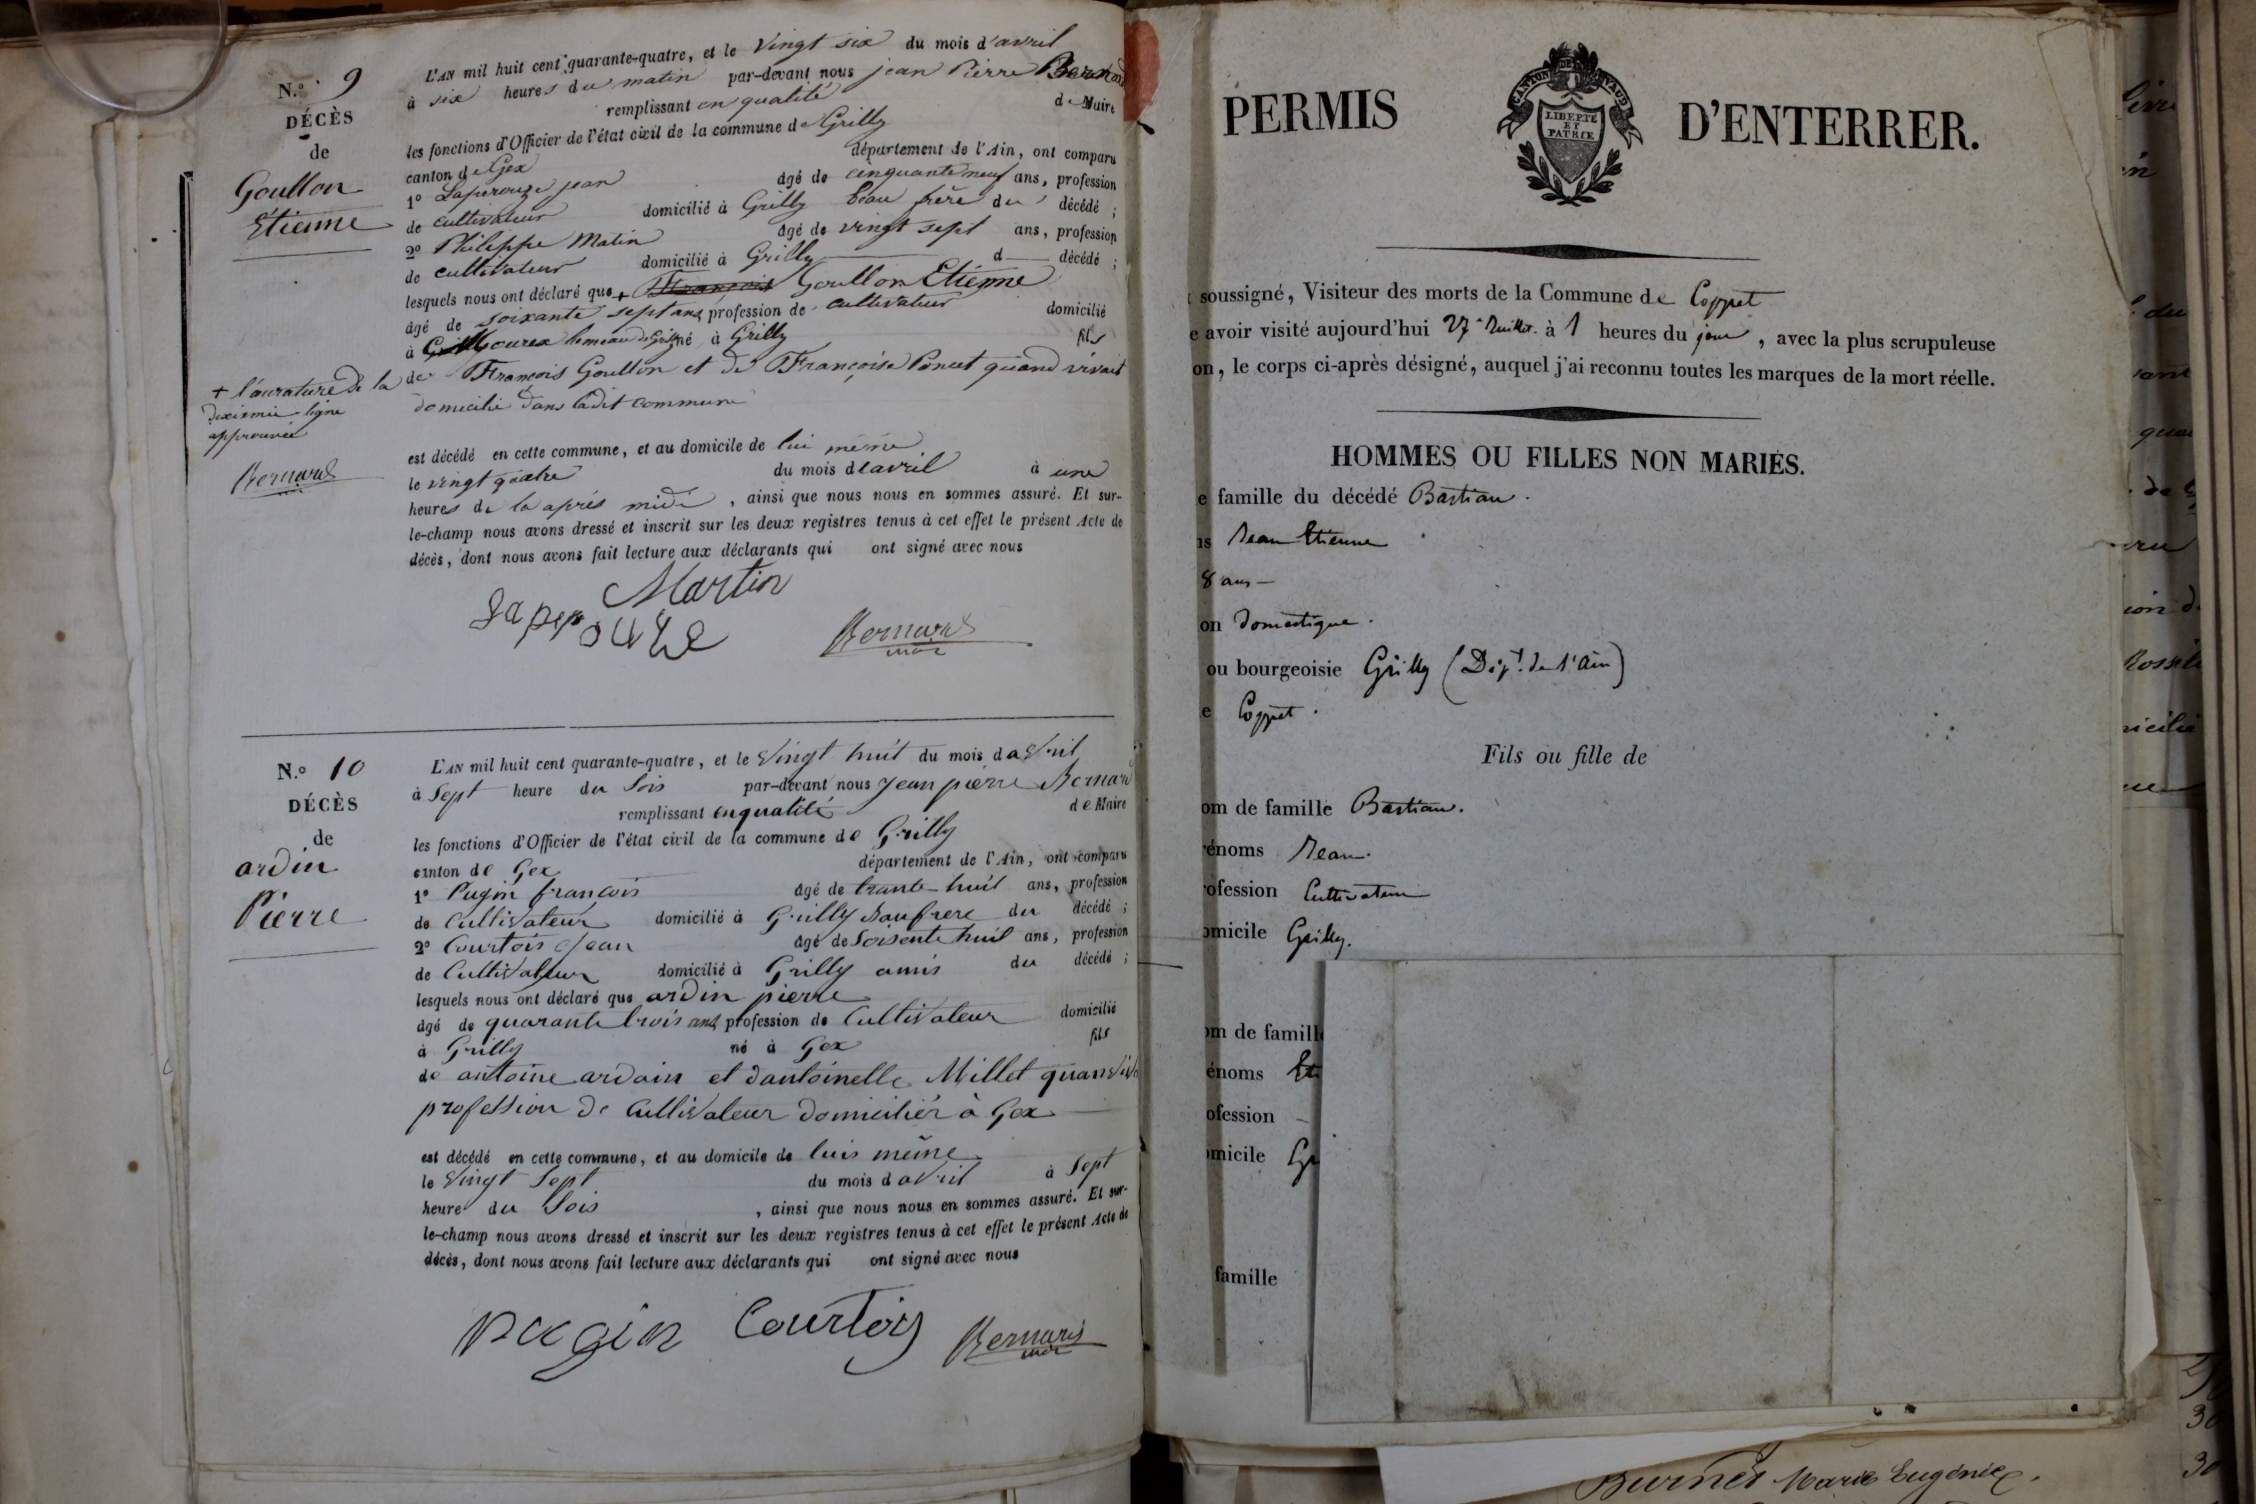 N.º 9
DÉCÈS
de
Goullon
Etienne
L'AN mil huit cent quarante-quatre, et le Vingt six du mois d'avril
à six heures du matin par-devant nous jean Pierre Bernard
remplissant en qualité de Maire
les fonctions d'Officier de l'état civil de la commune de Grilly
canton de Gex département de l'Ain, ont comparu
1º Laperouze jean âgé de cinquante neuf ans, profession
de cultivateur domicilié à Grilly beau frère du décédé ;
2º Philippe Matin âgé de vingt sept ans, profession
de cultivateur domicilié à Grilly d décédé ;
lesquels nous ont déclaré que + François Goullon Etienne
âgé de soixante sept ans, profession de cultivateur domicilié
à hameau de Grilly né à Grilly fils
de François Goullon et de Françoise Poncet quand vivait
domicilié dans ladit commune
+ la
dixiemie ligne
approuvée
Bernard
est décédé en cette commune, et au domicile de lui même
le vingt quatre du mois d'avril à une
heures de la après midi, ainsi que nous nous en sommes assuré. Et sur-
le-champ nous avons dressé et inscrit sur les deux registres tenus à cet effet le présent Acte de
décès, dont nous avons fait lecture aux déclarants qui ont signé avec nous
Martin
Laperouze
Bernard
mair
N.º 10
DÉCÈS
de
ardin
Pierre
L'AN mil huit cent quarante-quatre, et le Vingt huit du mois d avril
à Sept heure du Sois par-devant nous Jean pierre Bernard
remplissant enqualité de Maire
les fonctions d'Officier de l'état civil de la commune de Grilly
canton de Gex département de l'Ain, ont comparu
1º Pugin francois âgé de trante-huit ans, profession
de Cultivateur domicilié à Grilly Baufrere du décédé ;
2º Courtois Jean âgé de Soisente huit ans, profession
de Cultivateur domicilié à Grilly amis du décédé ;
lesquels nous ont déclaré que ardin pierre
âgé de quarante trois ans, profession de Cultivateur domicilié
à Grilly né à Gex fils
de antoine ardain et dantoinelle Millet
profession de Cultivateur domiciliér à Gex
est décédé en cette commune, et au domicile de luis même
le Vingt Sept du mois d avril à Sept
heure du Sois, ainsi que nous nous en sommes assuré. Et sur-
le-champ nous avons dressé et inscrit sur les deux registres tenus à cet effet le présent Acte de
décès, dont nous avons fait lecture aux déclarants qui ont signé avec nous
pugin Courtois Bernard
mair
PERMIS D'ENTERRER.
CANTON DE VAUD
LIBERTÉ
ET
PATRIE
soussigné, Visiteur des morts de la Commune de Coppet
avoir visité aujourd'hui 27 Juillet à 1 heures du jour, avec la plus scrupuleuse
on, le corps ci-après désigné, auquel j'ai reconnu toutes les marques de la mort réelle.
HOMMES OU FILLES NON MARIÉS.
e famille du décédé Bastian.
ns Jean Etienne
8 ans
on Domestique.
ou bourgeoisie Grilly (Dépt. de l'Ain)
e Coppet.
Fils ou fille de
om de famille Bastian.
énoms Jean.
ofession Cultivateur
omicile Grilly.
om de famille
énoms Et
ofession
omicile Gr
famille
Burnet Marie Eugénie,